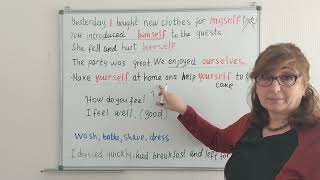 Yesterday I bought new clothes for myself
You introduced himself to the guests.
She fell and hurt herself
The party was great We enjoyed ourselves.
Make yourself at home and help yourself to the
cake
How do you feel ?
I feel well. (good)
Wash, bathe, shave, dress
I dressed quickly, had breakfast and left for